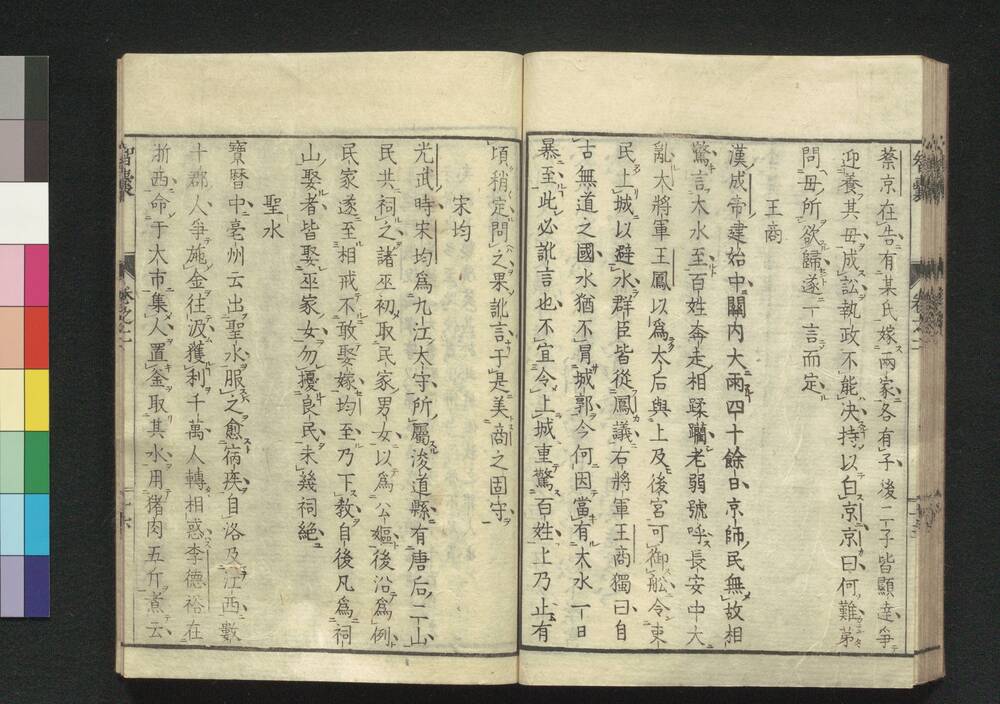 蔡京在告有某氏嫁兩家各有子後二子皆顯達爭
迎養其母成訟執政不能決持以白京京曰何難第
問母所欲歸遂一言而定
王商
漢成帝建始中關內大雨四十餘日京師民無故相
驚言大水至百姓奔走相蹂躪老弱號呼長安中大
亂大將軍王鳳以為太后與上及後宮可御船令吏
民上城以避水群臣皆從鳳議右將軍王商獨曰自
古無道之國水猶不冒城郭今何因當有大水一日
暴至此必訛言也不宜令上城重驚百姓上乃止有
頃稍定問之果訛言于是美商之固守
宋均
光武時宋均為九江太守所屬浚道縣有唐后二山
民共祠之諸巫初取民家男女以為公嫗後沿為例
民家遂至相戒不敢娶嫁均至乃下教自後凡為祠
山娶者皆娶巫家女勿擾良民未幾祠絕
聖水
寶曆中亳州云出聖水服之愈宿疾自洛及江西數
十郡人爭施金往汲獲利千萬人轉相惑李德裕在
浙西命于大市集人置釜取其水用豬肉五斤煮云
智囊
卷之二